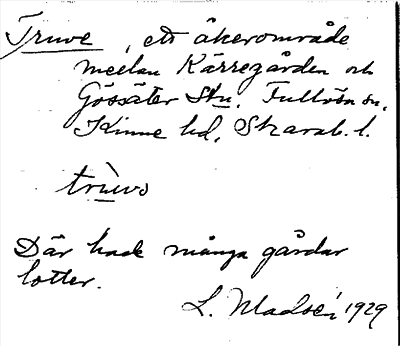 Truve, ett åkerområde
mellan Kärregården och
Gössäter Stn, Fullösa sn,
Kinne hd, Skarab. l.
trùvo
Där hade många gårdar
lotter.
L. Madsén 1929